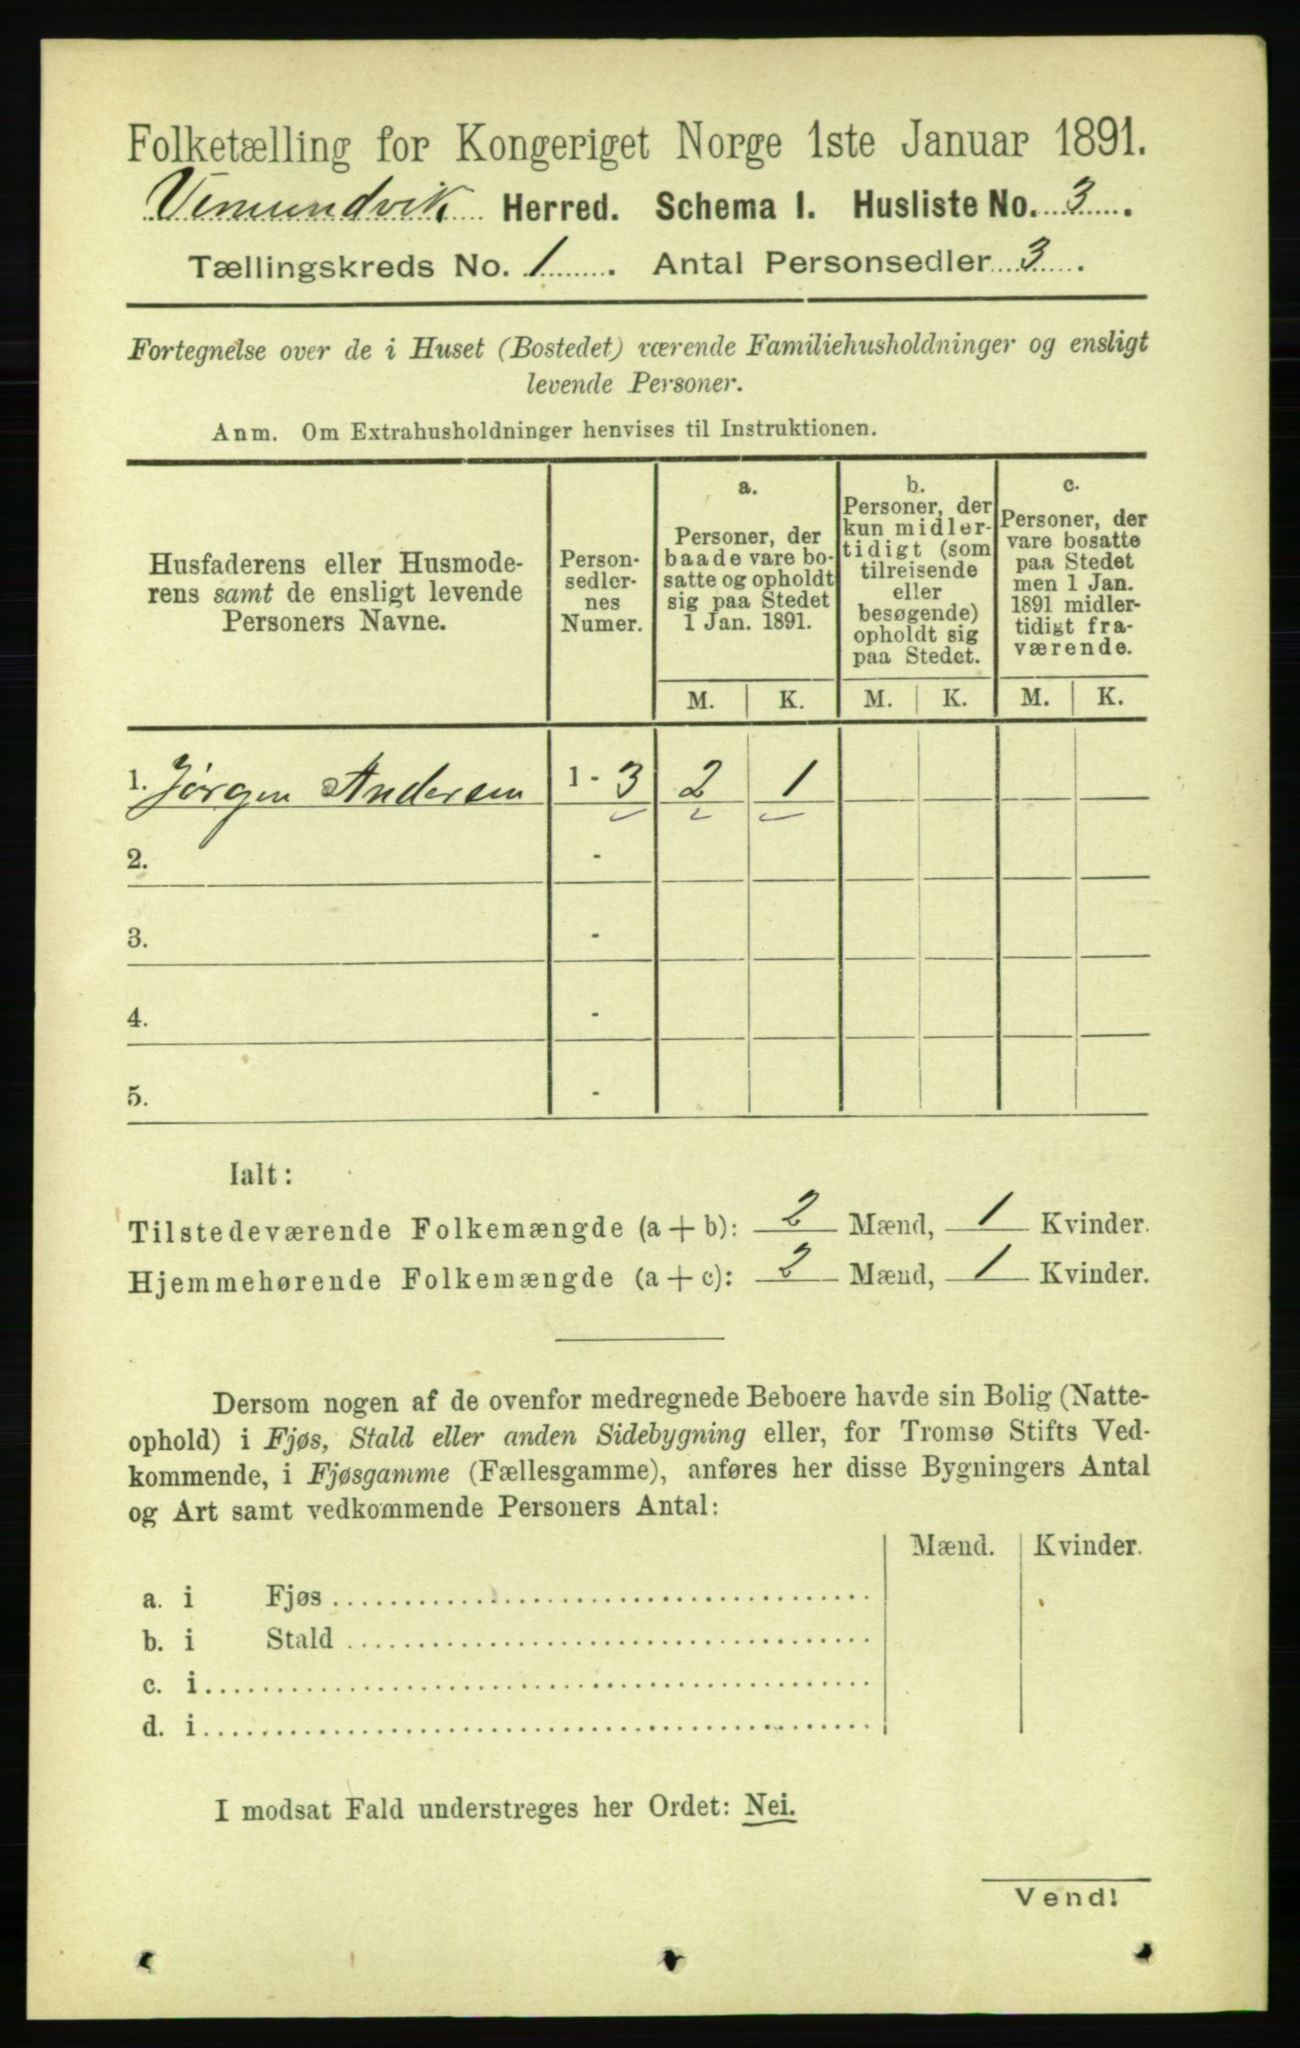 Folketælling for Kongeriget Norge 1ste Januar 1891.
Vemundvik Herred. Schema I. Husliste No. 3.
Tællingskreds No. 1. Antal Personsedler 3.
Fortegnelse over de i Huset (Bostedet) værende Familiehusholdninger og ensligt
levende Personer.
Anm. Om Extrahusholdninger henvises til Instruktionen.
Husfaderens eller Husmode-
rens samt de ensligt levende
Personers Navne.
Person-
sedler-
nes
Numer.
a.
Personer, der
baade vare bo-
satte og opholdt
sig paa Stedet
1 Jan. 1891.
b.
Personer, der
kun midler-
tidigt (som
tilreisende
eller
besøgende)
opholdt sig
paa Stedet.
c.
Personer, der
vare bosatte
paa Stedet
men 1 Jan.
1891 midler-
tidigt fra-
værende.
M. K. M. K. M. K.
1. Jørgen Andersen 1 - 3 2 1
2. -
3. -
4. -
5. -
Ialt:
Tilstedeværende Folkemængde (a + b): 2 Mænd, 1 Kvinder.
Hjemmehørende Folkemængde (a + c): 2 Mænd, 1 Kvinder.
Dersom nogen af de ovenfor medregnede Beboere havde sin Bolig (Natte-
ophold) i Fjøs, Stald eller anden Sidebygning eller, for Tromsø Stifts Ved-
kommende, i Fjøsgamme (Fællesgamme), anføres her disse Bygningers Antal
og Art samt vedkommende Personers Antal:
Mænd. Kvinder.
a. i Fjøs
b. i Stald
c. i
d. i
I modsat Fald understreges her Ordet: Nei.
Vend!